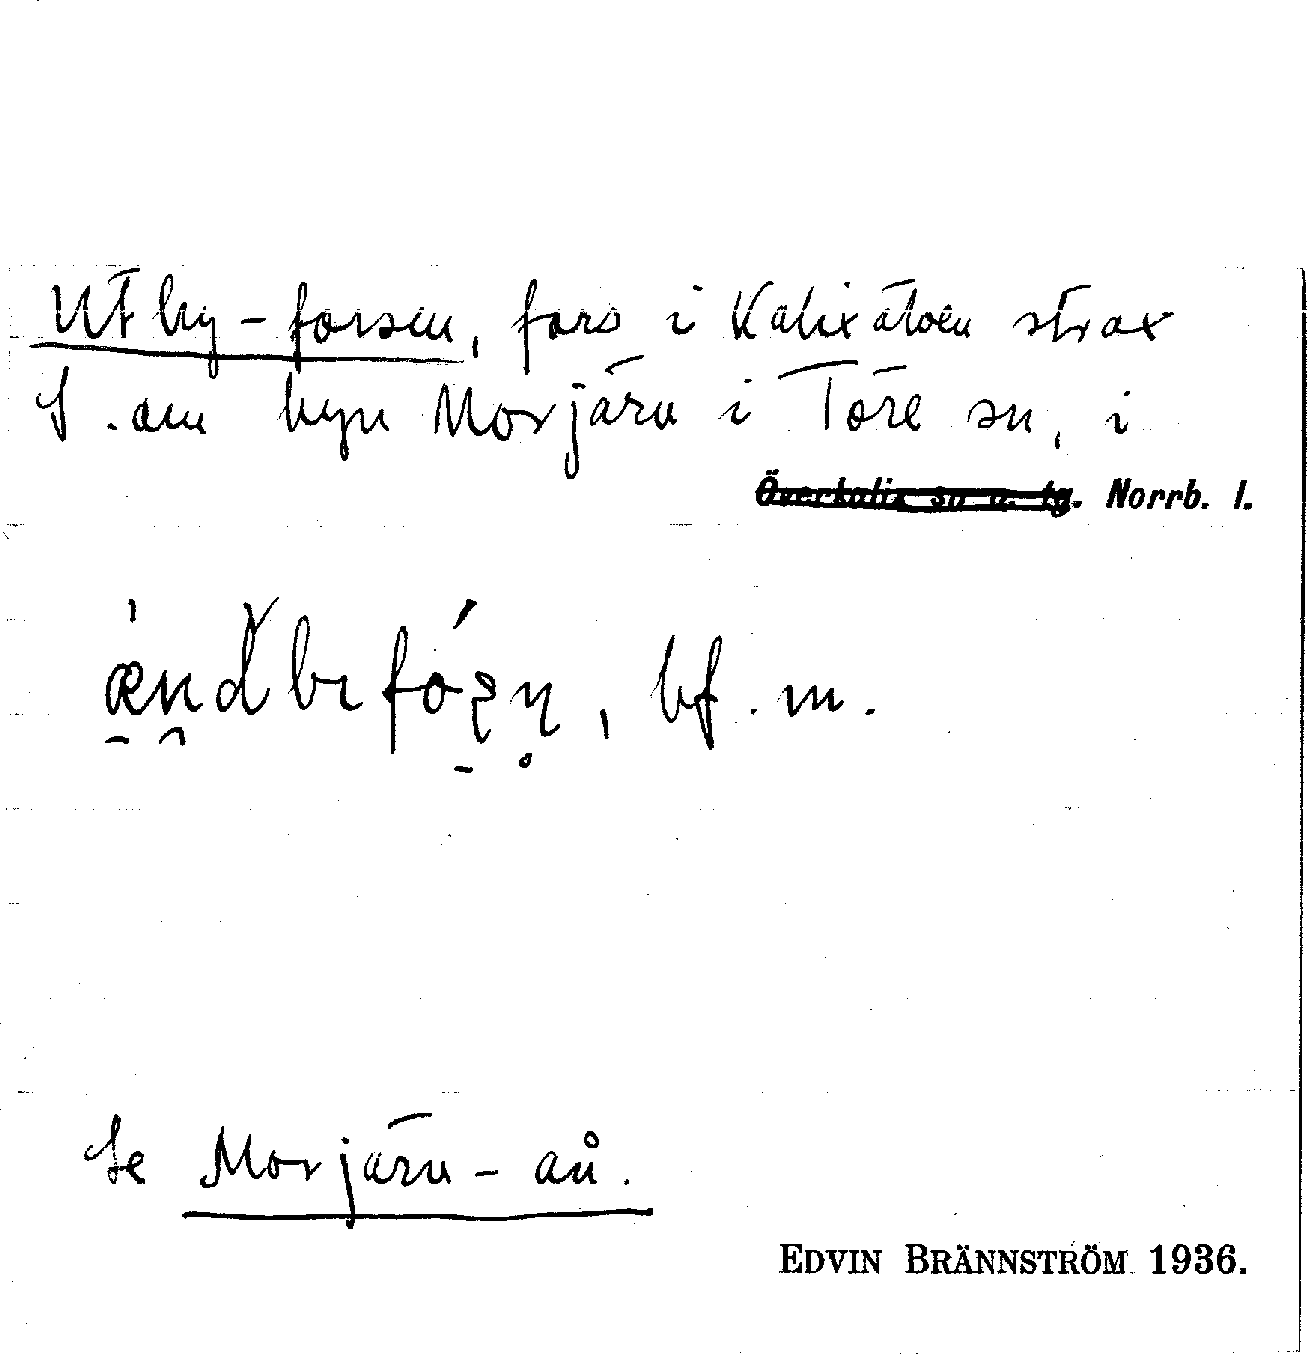 Utby-forsen, fors i Kalixälven strax
S. om byn Morjärv i Töre sn, i
Överkalix sn o. tg. Norrb. l.
bf. m.
Se Morjärv-ån.
EDVIN BRÄNNSTRÖM 1936.